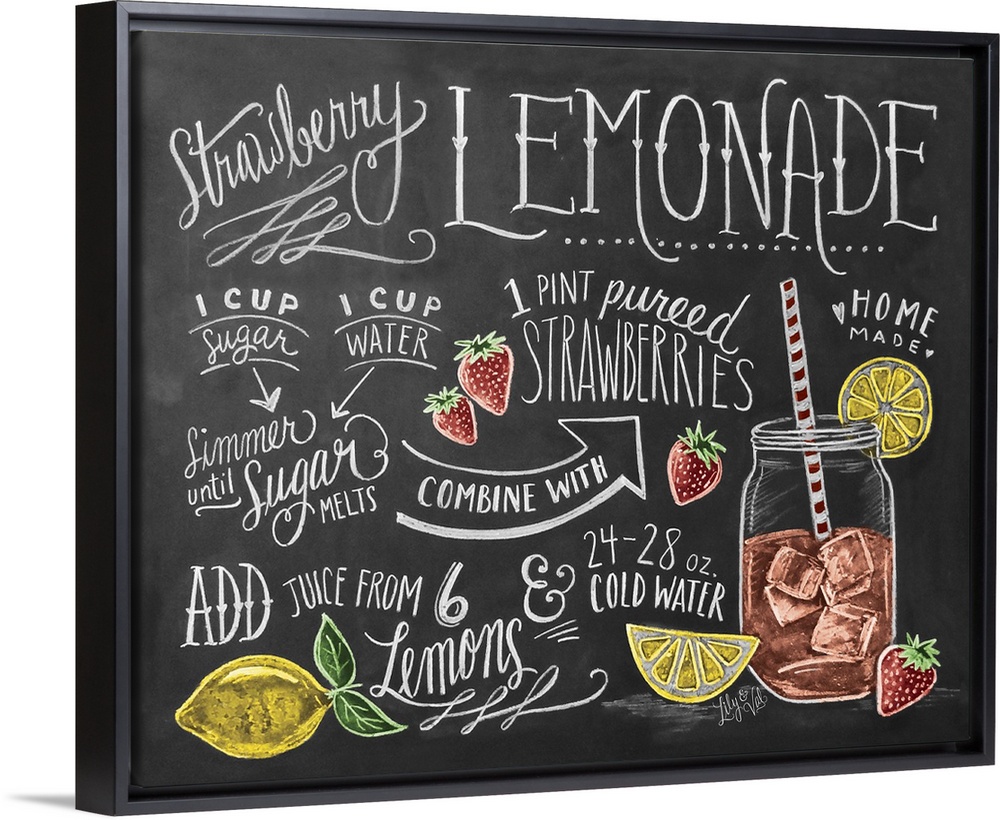 Strawberry LEMONADE
1 CUP
Sugar
1 CUP
WATER
Simmer
until Sugar
MELTS
COMBINE WITH
1 PINT pureed
STRAWBERRIES
HOME
MADE
ADD JUICE FROM 6
Lemons
& 24-28 oz.
COLD WATER
Lily & Val